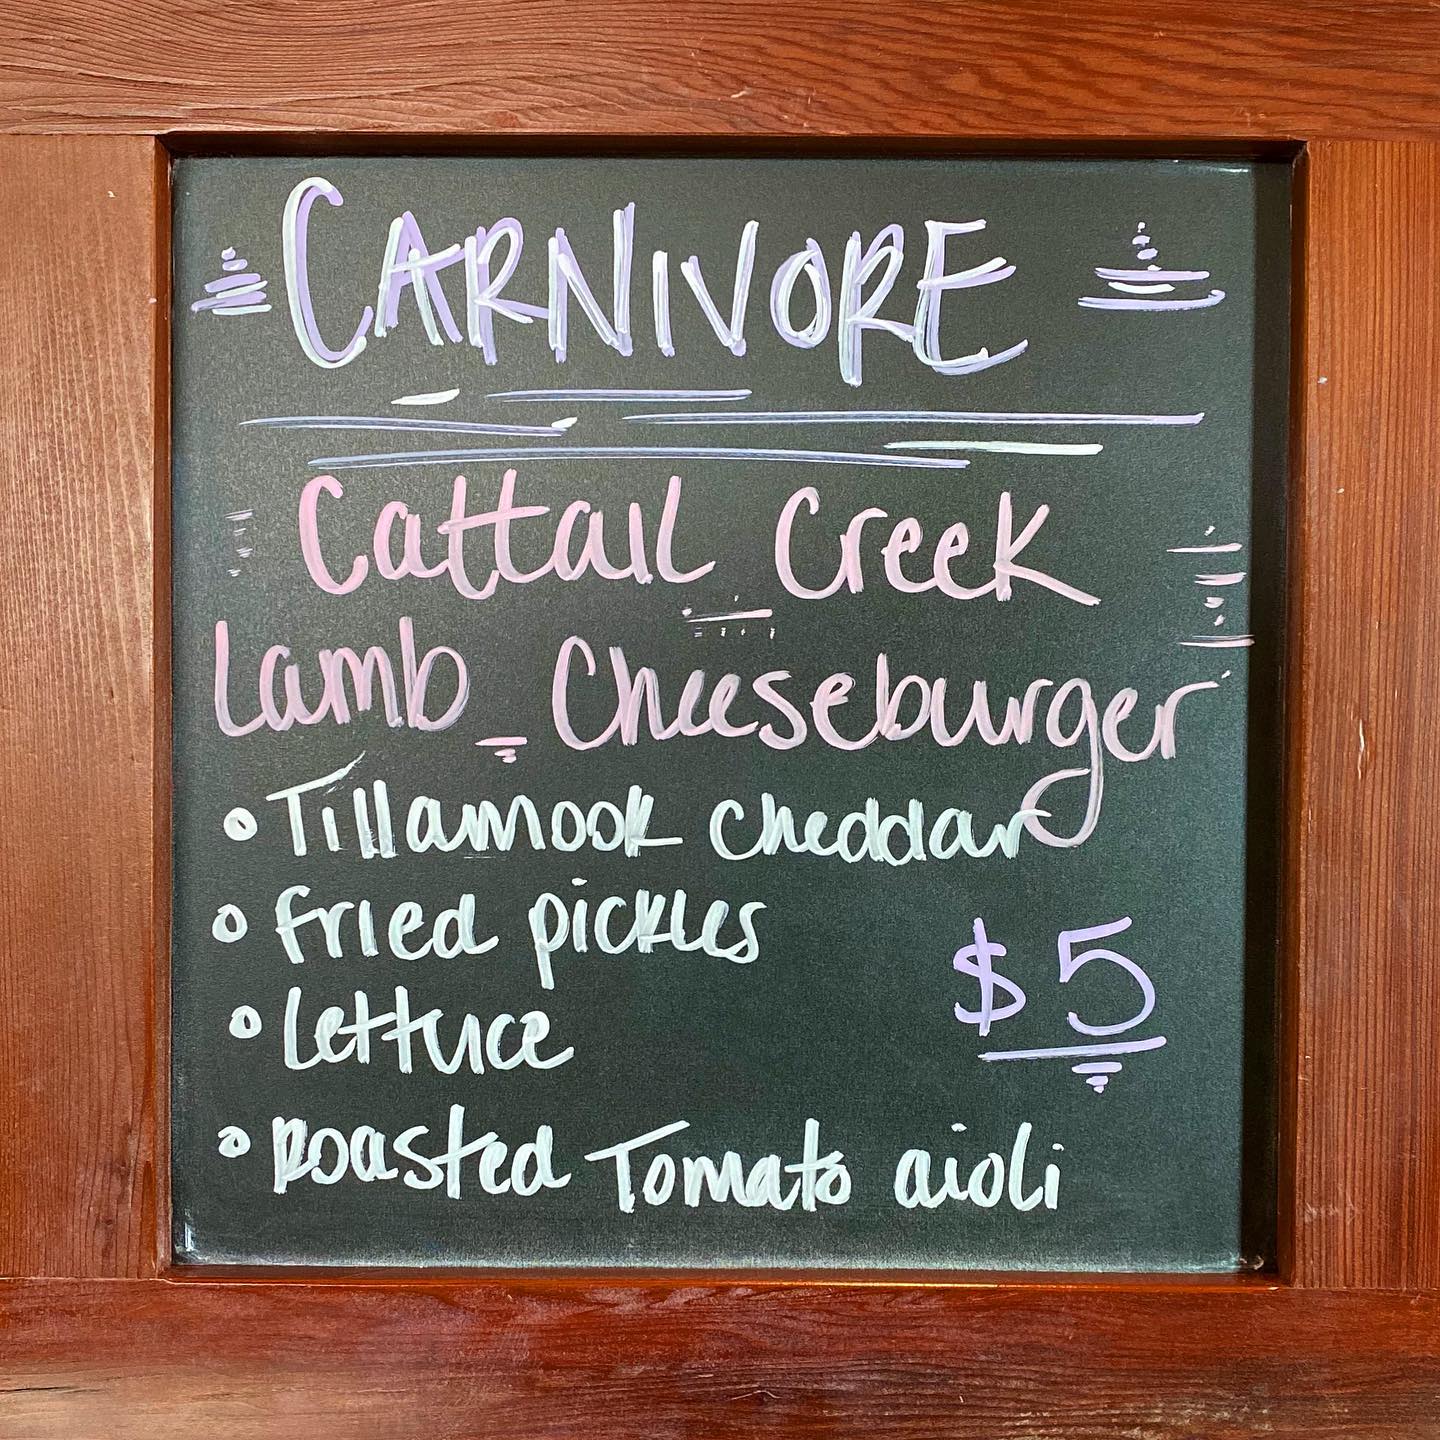 CARNIVORE
Cattail Creek
Lamb Cheeseburger
Tillamook cheddar
fried pickles
$5
lettuce
Roasted Tomato aioli